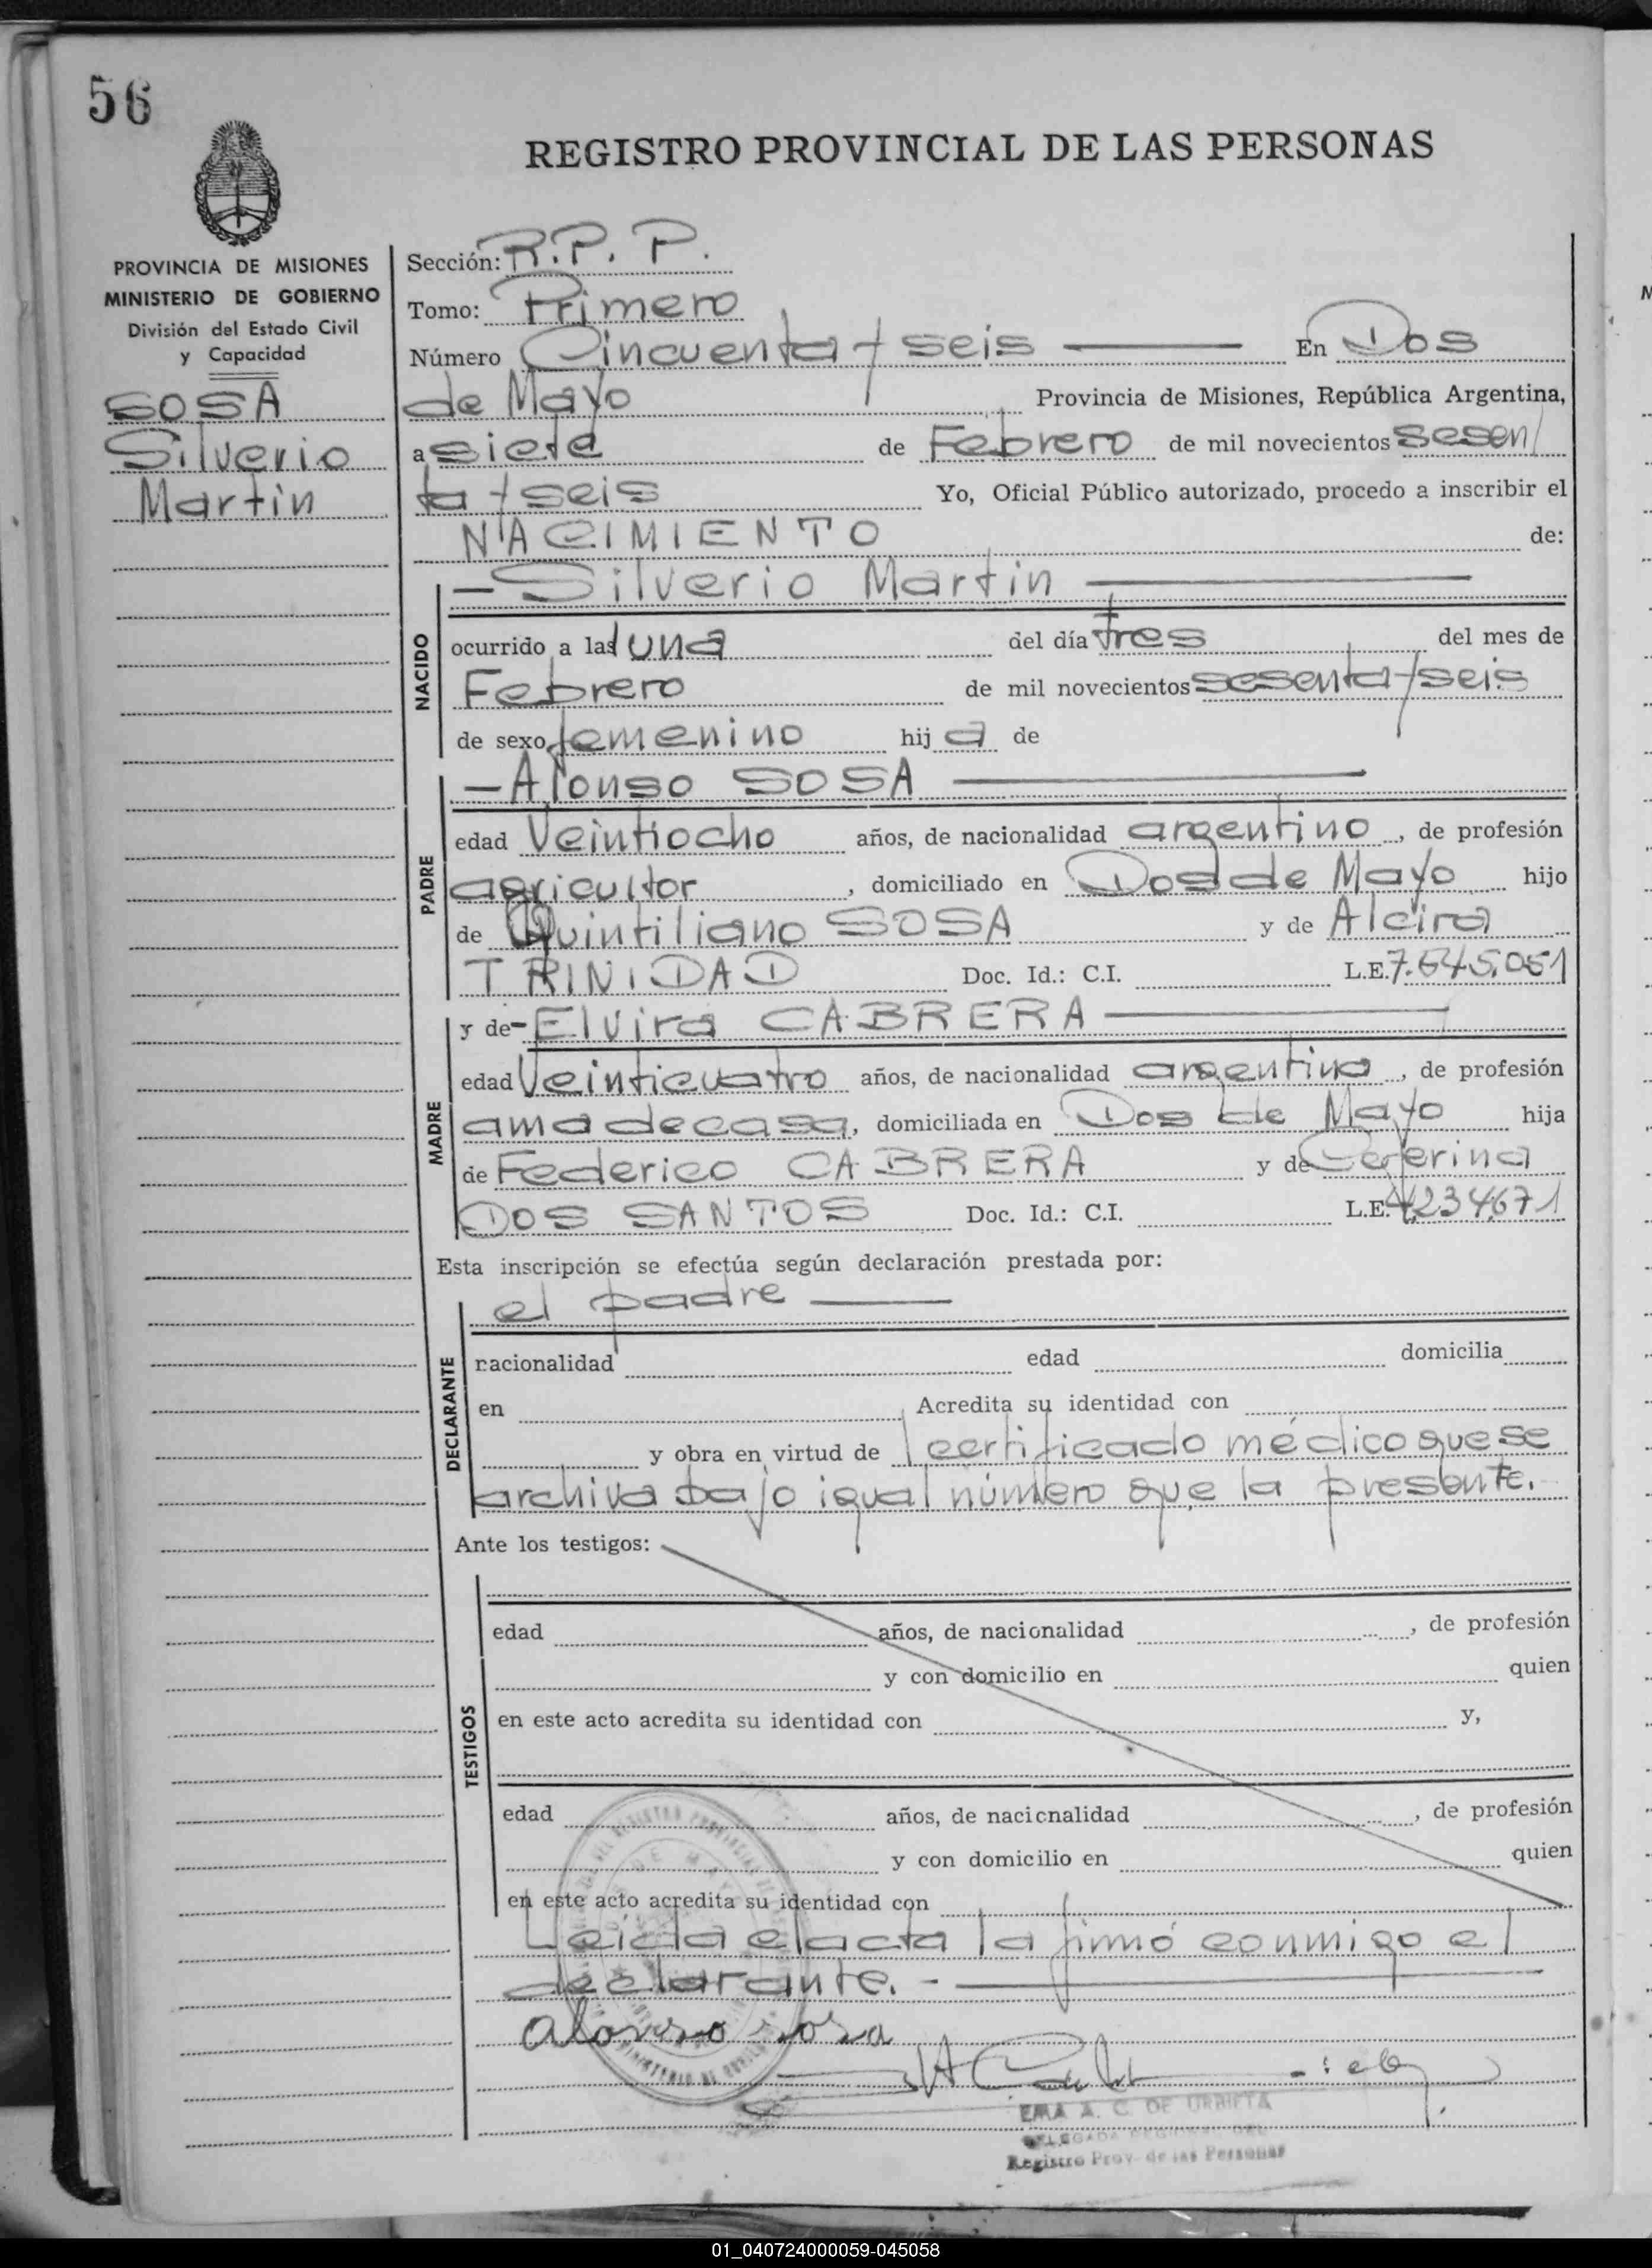 56
REGISTRO PROVINCIAL DE LAS PERSONAS
PROVINCIA DE MISIONES
MINISTERIO DE GOBIERNO
División del Estado Civil
y Capacidad
SOSA
Silverio
Martin
Sección: R.P.P.
Tomo: Primero
Número Cincuenta y seis En Dos
de Mayo Provincia de Misiones, República Argentina,
a siete de Febrero de mil novecientos sesen
ta y seis Yo, Oficial Público autorizado, procedo a inscribir el
NACIMIENTO de:
NACIDO
— Silverio Martin —
ocurrido a las una del día tres del mes de
Febrero de mil novecientos sesenta y seis
de sexo femenino hij a de
PADRE
— Alonso SOSA —
edad Veintiocho años, de nacionalidad argentino, de profesión
agricultor, domiciliado en Dos de Mayo hijo
de Quintiliano SOSA y de Alcira
TRINIDAD Doc. Id.: C.I. L.E. 7.645.051
MADRE
y de - Elvira CABRERA —
edad Veinticuatro años, de nacionalidad argentina, de profesión
ama de casa, domiciliada en Dos de Mayo hija
de Federico CABRERA y de Ceferina
DOS SANTOS Doc. Id.: C.I. L.E. 4.234.671
Esta inscripción se efectúa según declaración prestada por:
DECLARANTE
el padre —
nacionalidad edad domicilia
en Acredita su identidad con
y obra en virtud de certificado médico que se
archiva bajo igual número que la presente.
Ante los testigos:
TESTIGOS
edad años, de nacionalidad , de profesión
y con domicilio en quien
en este acto acredita su identidad con y,
edad años, de nacicnalidad , de profesión
y con domicilio en quien
en este acto acredita su identidad con
Leida el acta la firmó conmigo el
declarante. -
Alonso Sosa
EMA A. C. DE URRIETA
Registro Prov. de las Personas
01_040724000059-045058